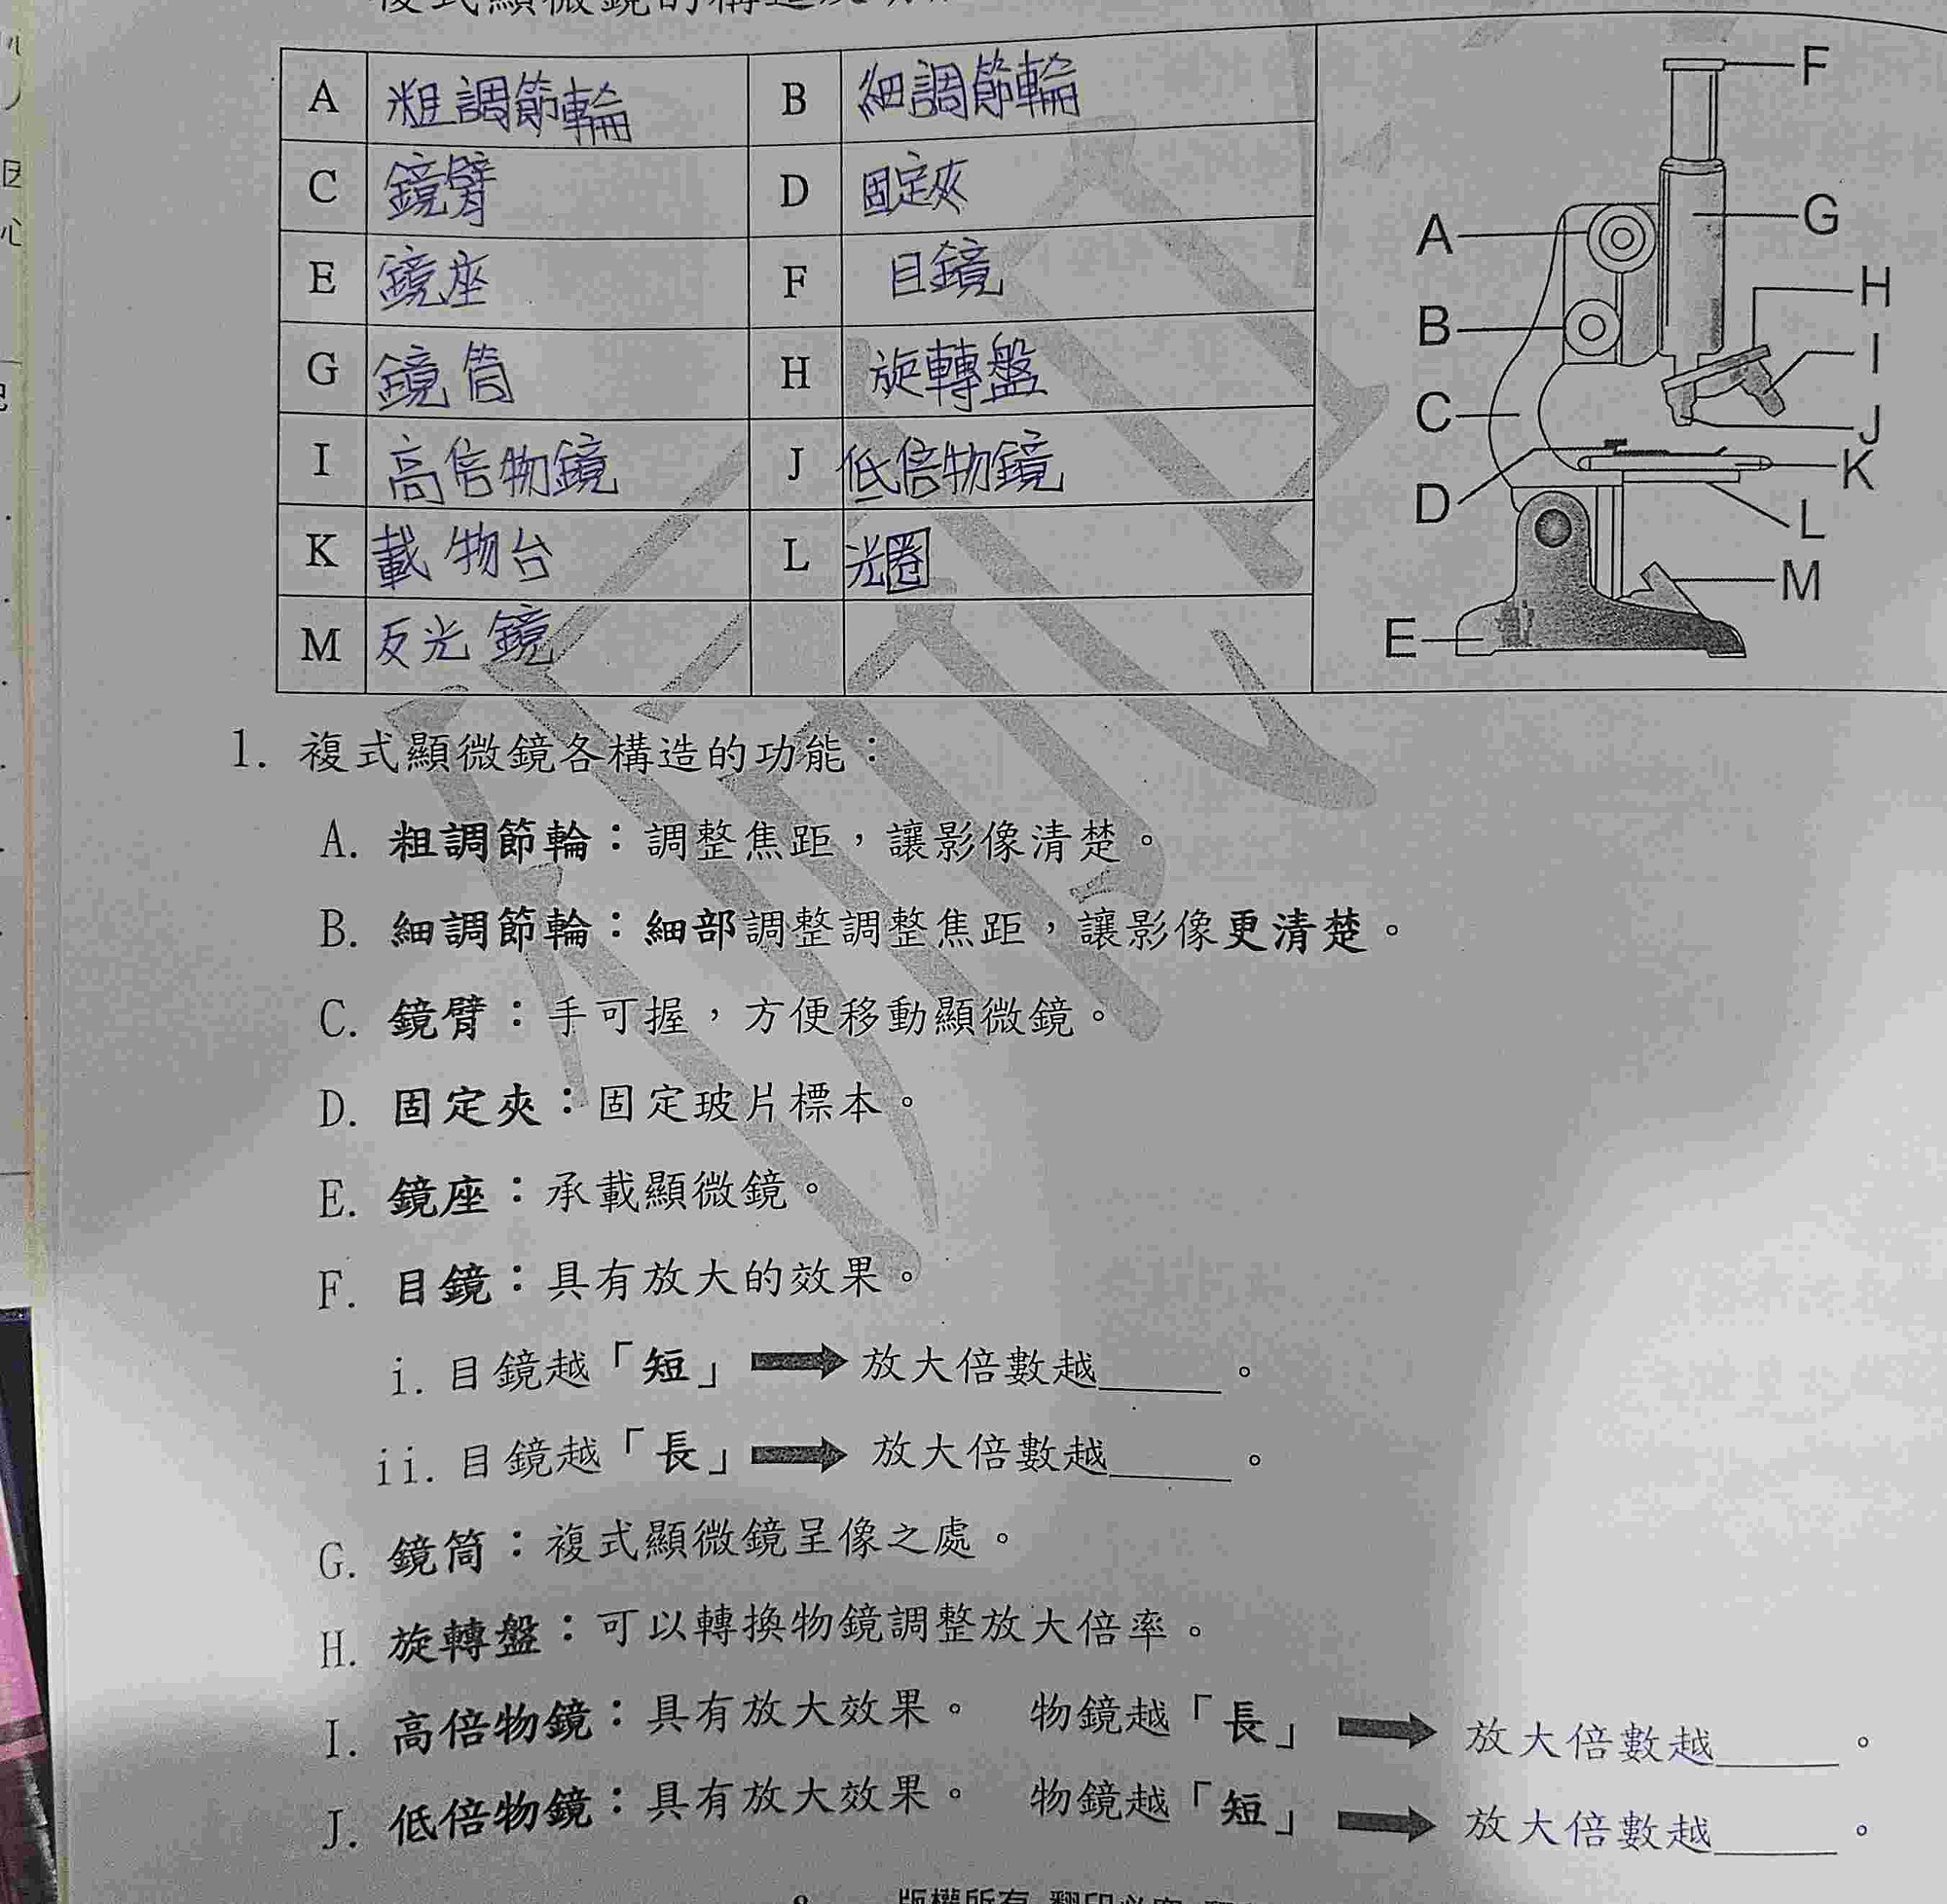 複式顯微鏡的構造
A 粗調節輪 B 細調節輪
C 鏡臂 D 固定夾
E 鏡座 F 目鏡
G 鏡筒 H 旋轉盤
I 高倍物鏡 J 低倍物鏡
K 載物台 L 光圈
M 反光鏡
F
G
A
H
B
I
C
J
K
D
L
M
E
1. 複式顯微鏡各構造的功能：
A. 粗調節輪：調整焦距，讓影像清楚。
B. 細調節輪：細部調整調整焦距，讓影像更清楚。
C. 鏡臂：手可握，方便移動顯微鏡。
D. 固定夾：固定玻片標本。
E. 鏡座：承載顯微鏡。
F. 目鏡：具有放大的效果。
i. 目鏡越「短」 放大倍數越_____。
ii. 目鏡越「長」 放大倍數越_____。
G. 鏡筒：複式顯微鏡呈像之處。
H. 旋轉盤：可以轉換物鏡調整放大倍率。
I. 高倍物鏡：具有放大效果。 物鏡越「長」 放大倍數越_____。
J. 低倍物鏡：具有放大效果。 物鏡越「短」 放大倍數越_____。
版權所有 翻印必究